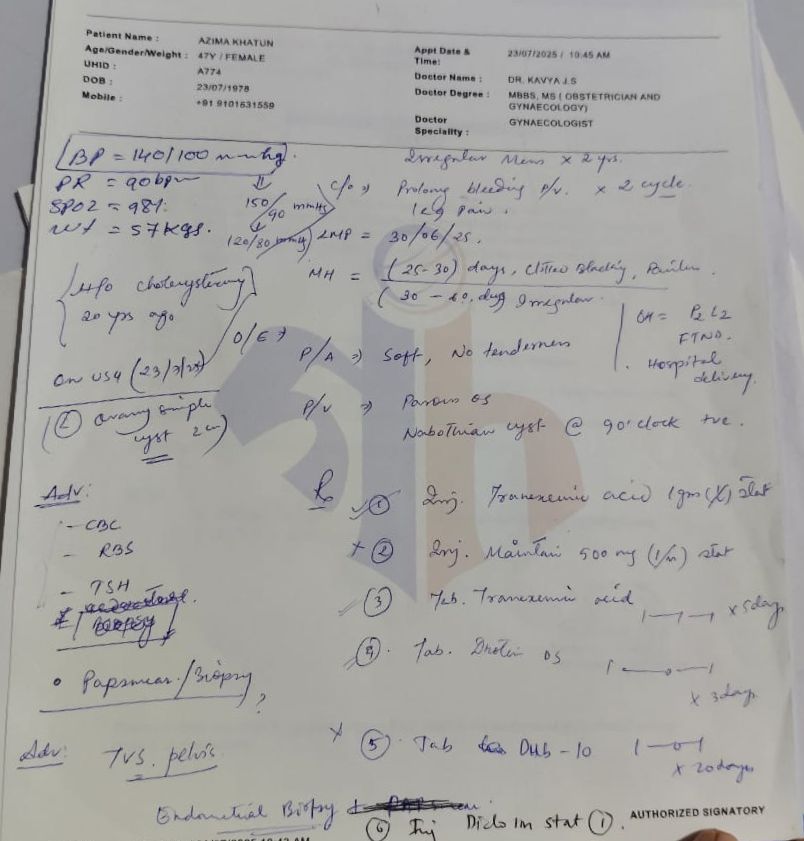 Patient Name : AZIMA KHATUN
Age/Gender/Weight : 47Y / FEMALE
UHID : A774
DOB : 23/07/1978
Mobile : +91 9101631559
Appt Date & Time: 23/07/2025 / 10:45 AM
Doctor Name : DR. KAVYA J.S
Doctor Degree : MBBS, MS ( OBSTETRICIAN AND GYNAECOLOGY)
Doctor Speciality : GYNAECOLOGIST
BP = 140/100 mmhg.
PR = 90bpm
SPO2 = 98%
wt = 57kgs.
150/90 mmHg
120/80 mmHg
Irregular Mens x 2 yrs.
C/o => Prolong bleeding P/v. x 2 cycle.
leg pain.
LMP = 30/06/25.
MH = (25-30) days, Painless.
(30 - 60 days Irregular.
OH = P2 L2
FTND.
Hospital delivery.
H/o
20 yrs ago
O/E =>
P/A => Soft, No tenderness
P/v => Parous os
Nabothian cyst @ 9 o'clock +ve.
On USG (23/7/25)
Ovary simple cyst 2cm
Adv:
- CBC
- RBS
- TSH
• Papsmear/Biopsy
Adv: TVS. pelvis.
Rx
① Inj. Tranexemic acid 1gm stat
x ② Inj. Maintain 500 mg (I/m) stat
③ Tab. Tranexemic acid 1-1-1 x 5days
④ Tab. Drotin DS 1-0-1
x 3days
x ⑤ Tab Dub-10 1-0-1
x 20days
Endometrial Biopsy
⑥ Inj Diclo Im stat ①.
AUTHORIZED SIGNATORY